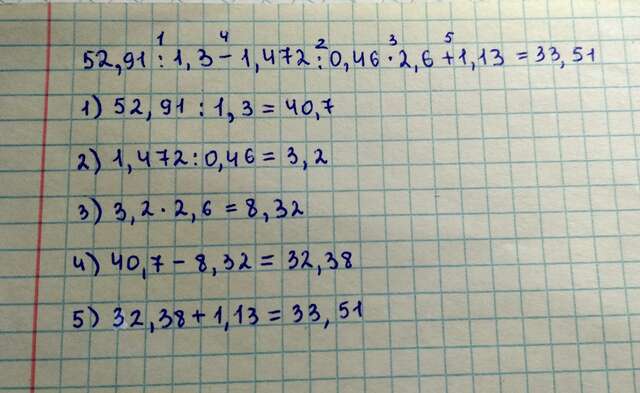 1 4 2 3 5
52,91 : 1,3 - 1,472 : 0,46 · 2,6 + 1,13 = 33,51
1) 52,91 : 1,3 = 40,7
2) 1,472 : 0,46 = 3,2
3) 3,2 · 2,6 = 8,32
4) 40,7 - 8,32 = 32,38
5) 32,38 + 1,13 = 33,51